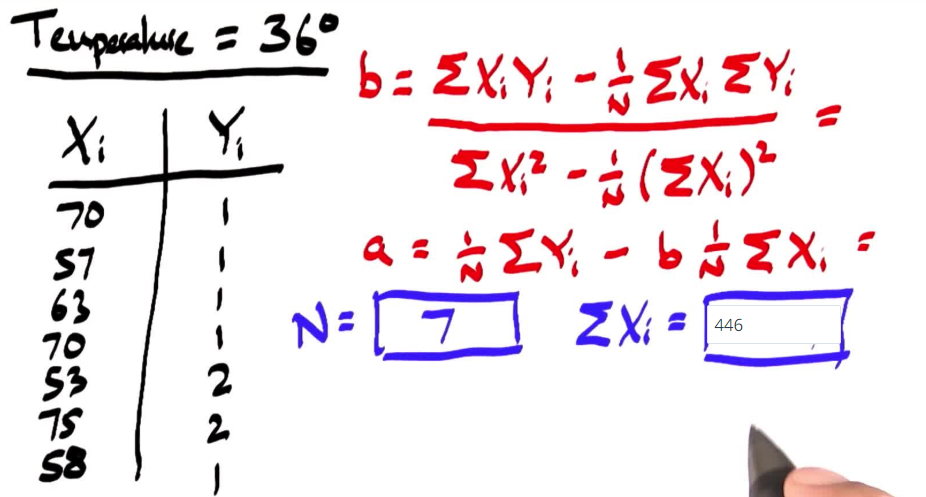 Temperature = 36°
Xi Yi
70 1
57 1
63 1
70 1
53 2
75 2
58 1
b = ΣXiYi - 1/N ΣXi ΣYi / ΣXi² - 1/N (ΣXi)² =
a = 1/N ΣYi - b 1/N ΣXi =
N = 7 ΣXi = 446